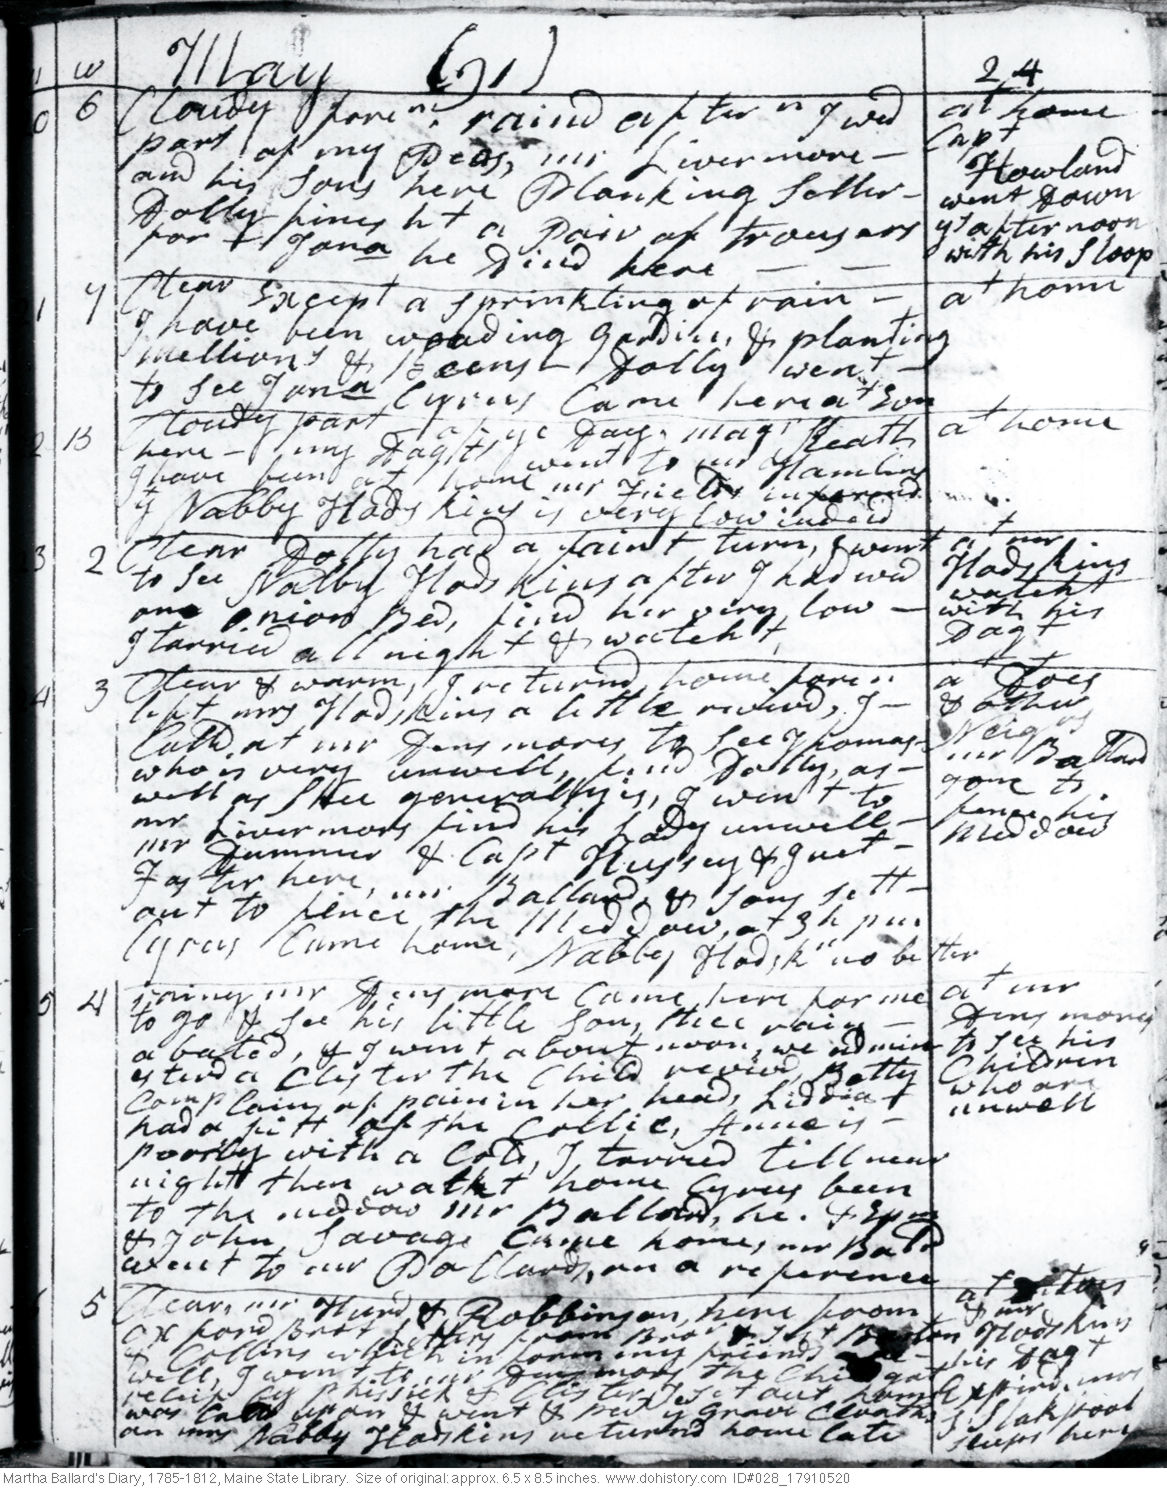 W May (91) 24
6 Cloudy foren.n. raind aftern I wed
part of my Peas, mr Livermore –
and his Sons here Planking Seller –
Dolly finesht a Pair of trowsers
for – Jona he Dind here — —
at home
Capt
Howland
went Down
yt afternoon
with his Sloop
1 7 Clear Except a sprinkling of rain –
I have been weading gardin, & planting
mellions & Beens – Dolly went –
to see Jona Cyrus Came here at Son
at home
2 B Cloudy part of ye Day. magr Heath
here – my Dagts went to mr Hamlins
I have been at home mr Fields informd
yt Nabby Hodskins is very low indeed
at home
3 2 Clear Dolly had a faint turn, I went
to see Nabby Hodskins after I had wed
one onion Bed, find her very low –
I tarried all night & watcht,
at mr
Hodskins
watcht
with his
Dagt
4 3 Clear & warm, I returnd home foren
left mrs Hodskins a little revivd, I –
Calld at mr Densmores to see Thomas –
who is very unwell, find Dolly, as –
well as Shee generally is, I went to
mr Livermors find his Lady unwell –
mr Dummer & Capt Hussey & Guet –
Faster here, mr Ballard, & sons sett –
out to fence the Meddow, at 3h pm
Cyrus Came home, Nabby Hodskns no better
at Does
& other
Neighrs
mr Ballard
gone to
fence his
Meddow
5 4 rainy mr Densmore Came here for me
to go & See his little Son, Shee rain –
abated, & I went about noon, we admin
esterd a Clister the Child revivd, Betty
Complains of pain in her head, Liddia
had a fitt of the Collic, Anne is –
poorly with a Cold, I tarried till near
night then walkt home Cyrus been
to the meddow mr Ballard, he. & Epm
& John Savage Came home, mr Balld
went to mr Pollards, on a reference
at mr
Densmores
to see his
Children
who are
unwell
5 Clear, mr Hurd & Robbinson, here from
oxford Brot Letters from Bror & Sistr Barton
& Collins which inform my friends are –
well, I went to mr Densmors, the Child got
relief by Phissick & Clister, I sett out home
was Calld upon & went & put ye grave Cloaths
on mrs Nabby Hodskins returnd home late
at
& mr
Hodskins
his Dagt
Expird. mrs
Stakpool
sleeps here
Martha Ballard's Diary, 1785-1812, Maine State Library. Size of original: approx. 6.5 x 8.5 inches. www.dohistory.com ID#028_17910520